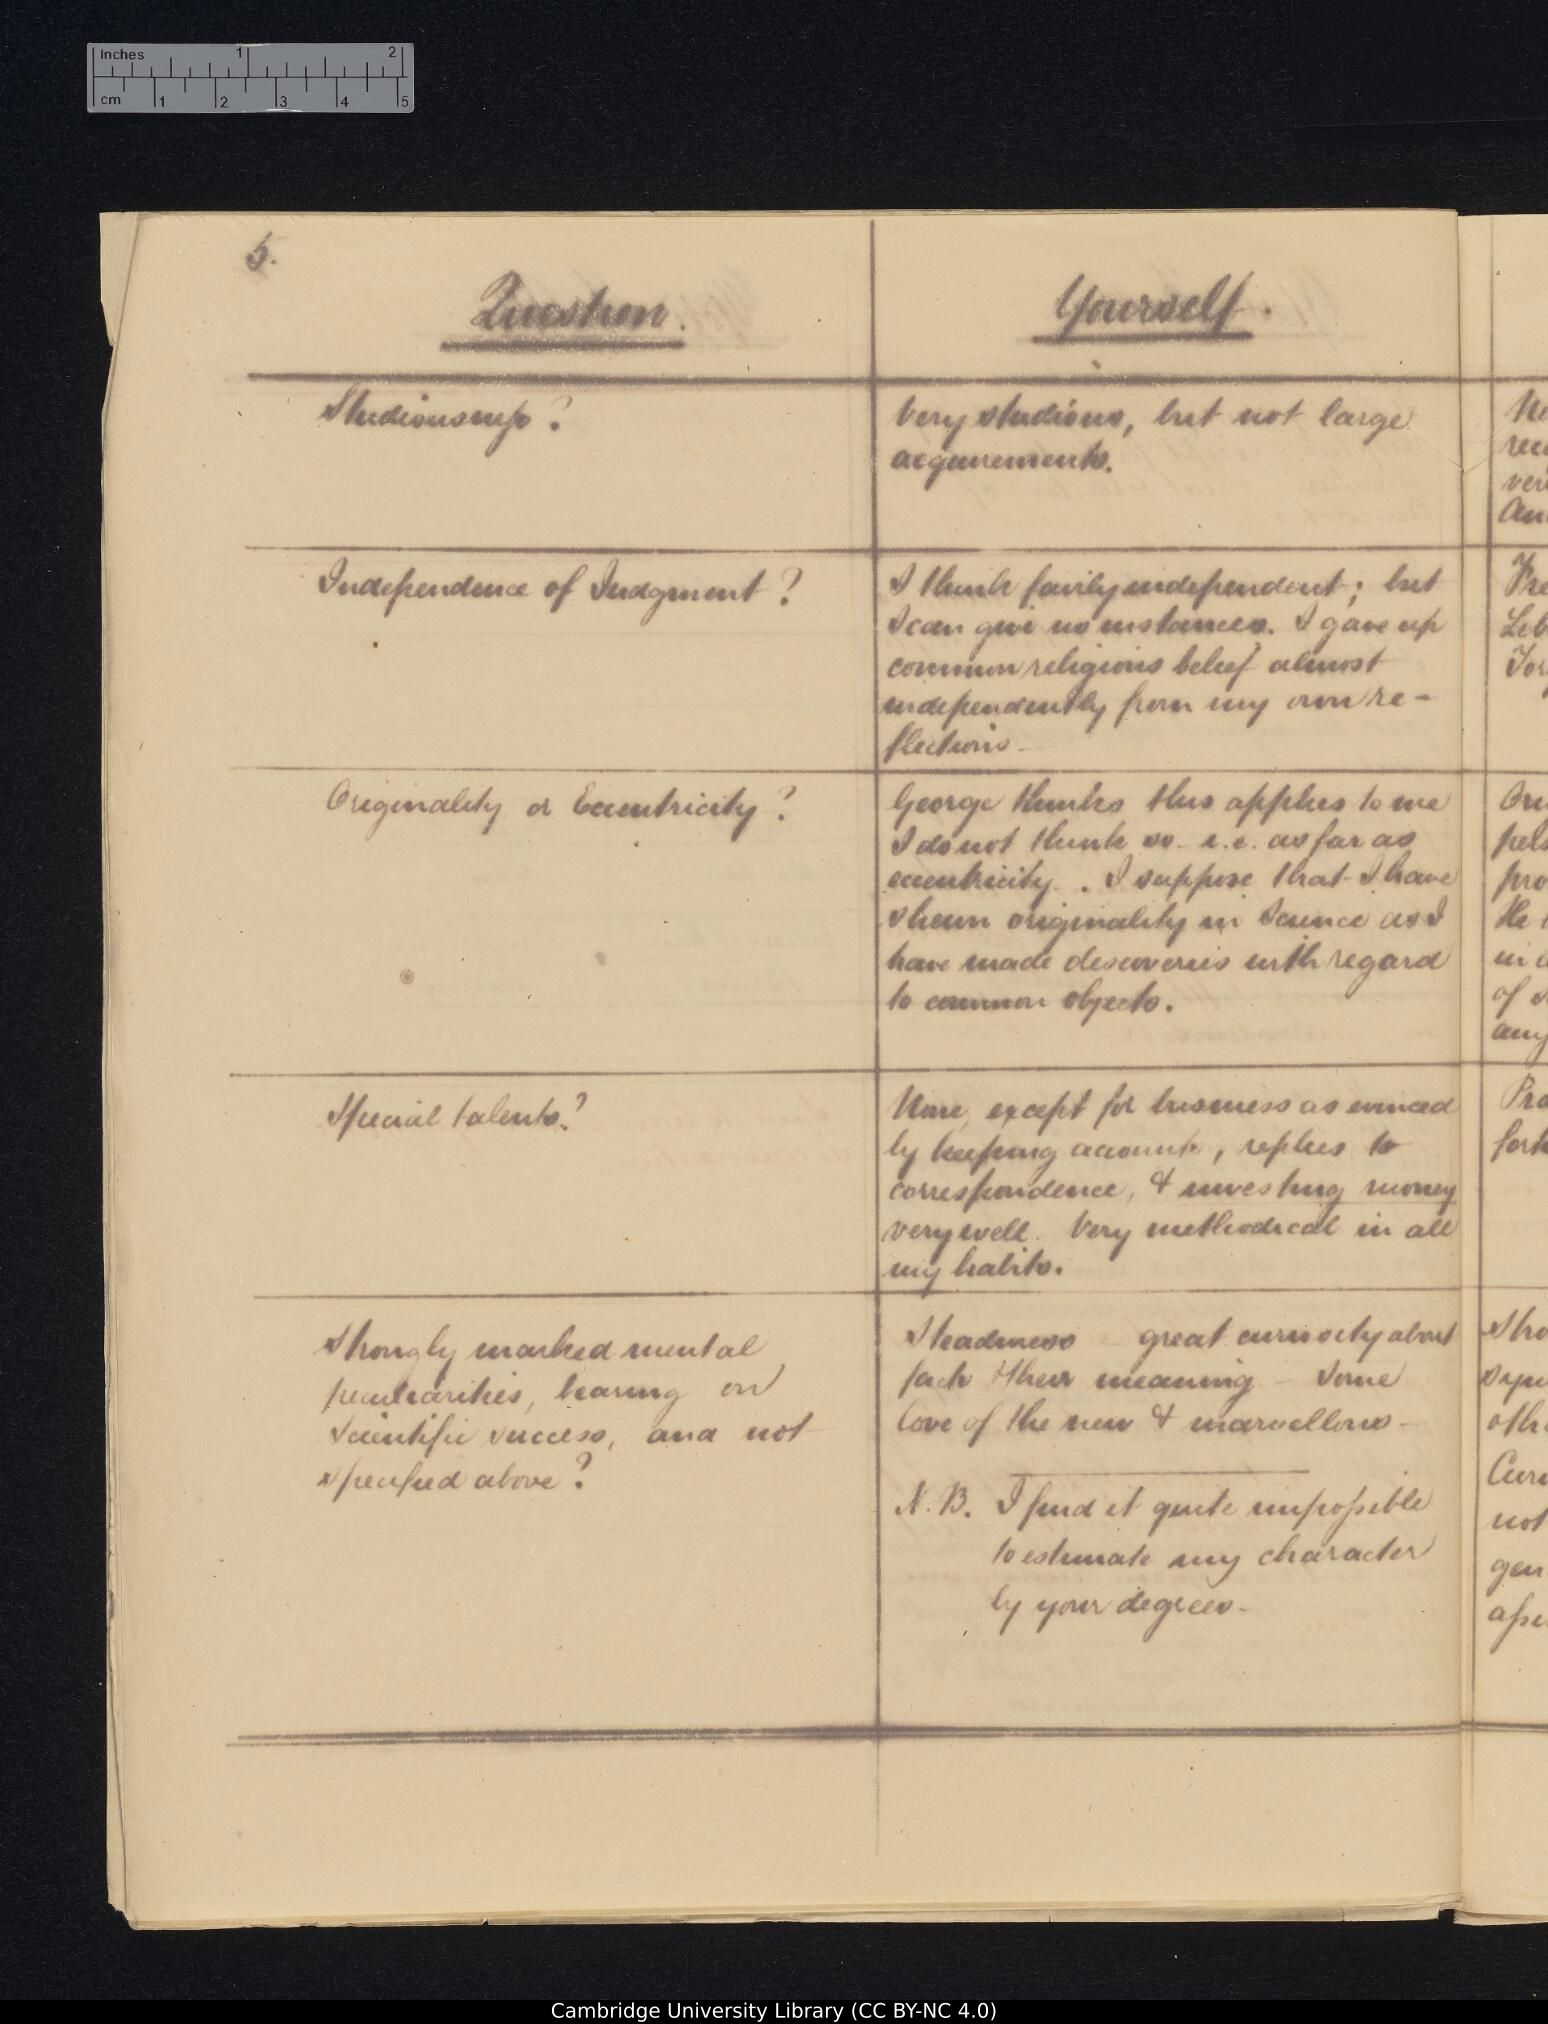 Inches 1 2
cm 1 2 3 4 5
5.
Question.
Yourself.
Studiousness?
Very studious, but not large
acquirements.
Independence of Judgment?
I think fairly independent; but
I can give no instances. I gave up
common religious belief almost
independently from my own re-
flections-
Originality or Eccentricity?
George thinks this applies to me
I do not think so- i.e. as far as
eccentricity. I suppose that I have
shewn originality in Science as I
have made discoveries with regard
to common objects.
Special talents?
None, except for business as evinced
by keeping accounts, replies to
correspondence, & investing money
very well. Very methodical in all
my habits.
Strongly marked mental
peculiarities, bearing on
scientific success, and not
specified above?
Steadiness - great curiosity about
facts & their meaning - Some
love of the new & marvellous-
N.B. I find it quite impossible
to estimate my character
by your degrees-
rec
ver
Leb
pro
He
in
of
any
forh
oth
Curi
not
gen
Cambridge University Library (CC BY-NC 4.0)